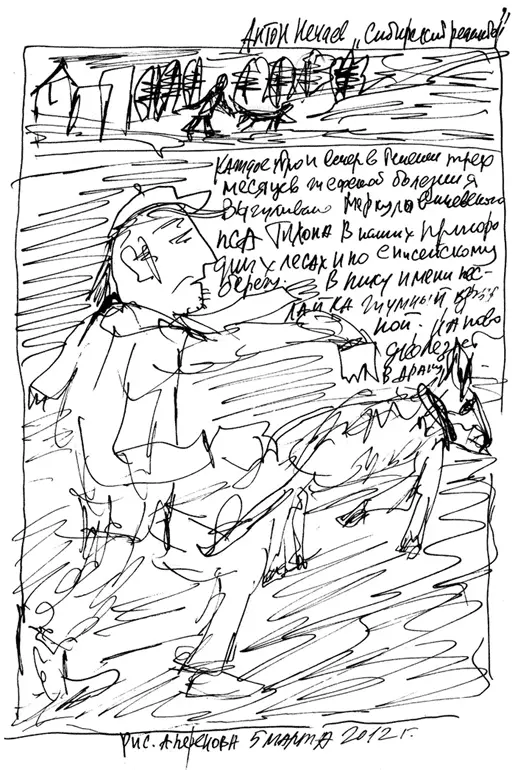 Антон Нечаев „Сибирский редактор"
каждое утро и вечер в течении трех
месяцев тещеной болезни я
выгуливаю Меркуловичевского
пса Тихона в наших пригоро
дных лесах и по Енисейскому
берегу. В пику имени пес-
лайка шумный
ной.
в драку
рис. 5 марта 2012 г.